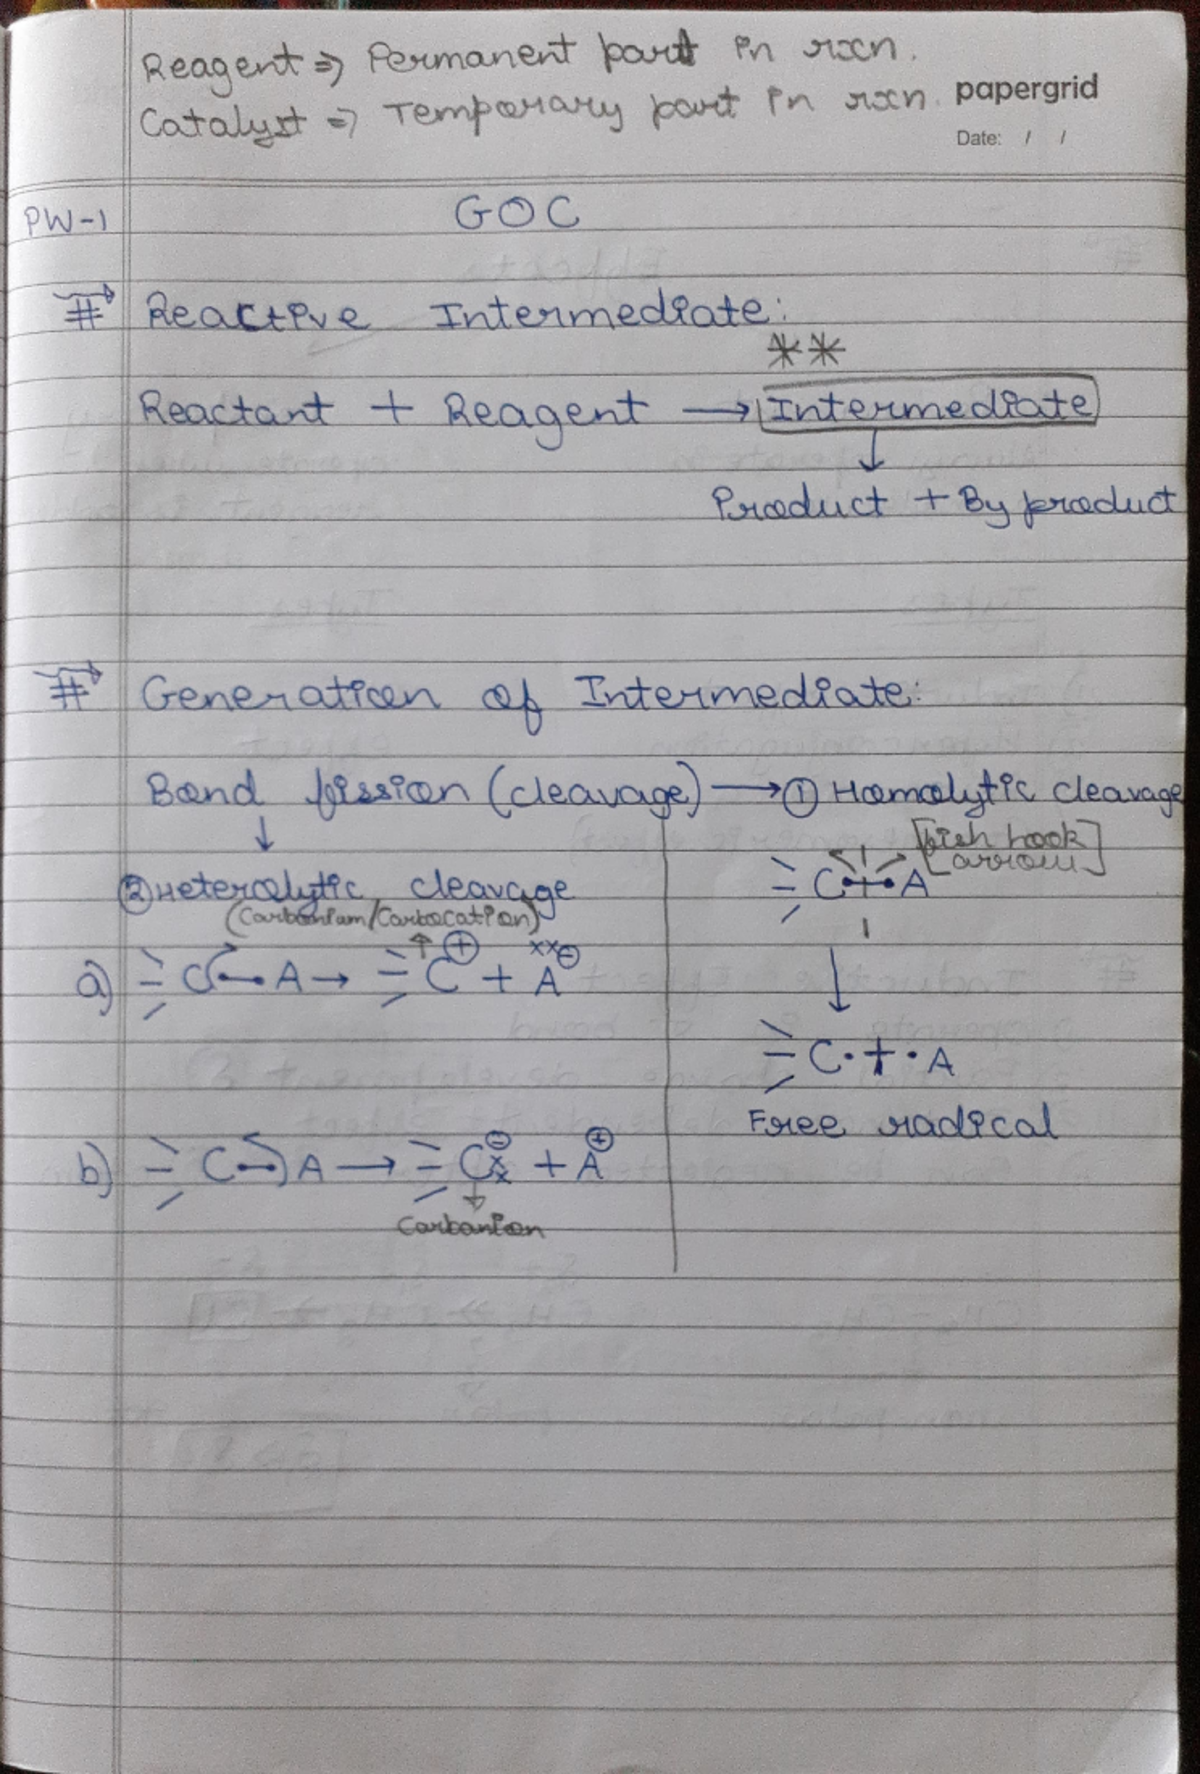 Reagent ⇒ Permanent part in rxn.
Catalyst ⇒ Temporary part in rxn.
papergrid
Date: / /
PW-1
GOC
# Reactive Intermediate:
**
Reactant + Reagent → Intermediate
↓
Product + By product
# Generation of Intermediate:
Bond fission (cleavage) → ① Homolytic cleavage
↓
[fish hook arrow]
C–A
② Heterolytic cleavage
(Carbonium/Carbocation)
a) C–A → C⊕ + A⊖
↓
C· + ·A
Free radical
b) C–A → C⊖ + A⊕
Carbanion